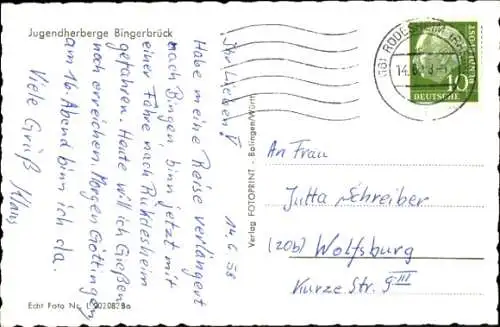 Jugendherberge Bingerbrück
14.6.58
Ihr Lieben!
Habe meine Reise verlängert
nach Bingen, binn jetzt mit
einer Fähre nach Rüdesheim
gefahren. Heute will ich Gießen
noch erreichen. Morgen Göttingen
am 16. Abend binn ich da.
Viele Grüß Klaus
Echt Foto Nr.
Verlag FOTOPRINT - Balingen/Württ.
RÜDESHEIM
DEUTSCHE
BUNDESPOST
10
An Frau
Jutta Schreiber
(20b) Wolfsburg
Kurze Str. 9 III